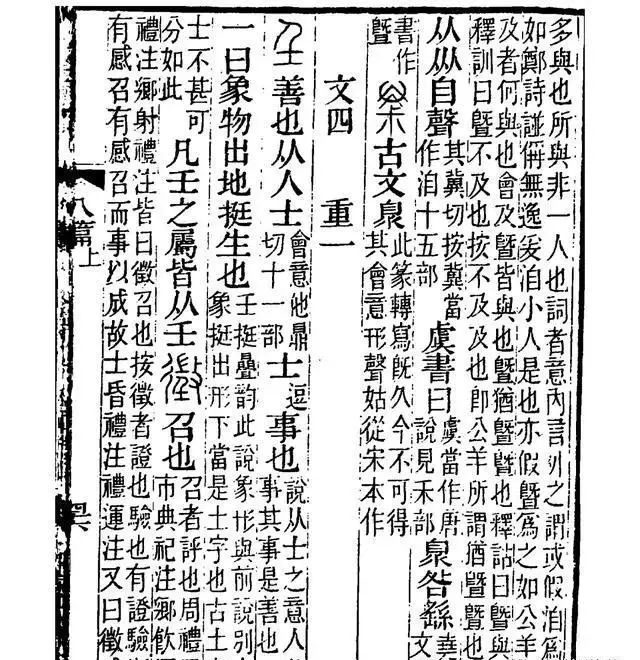 多與也所與非一人也詞者意內言外之謂或假洎爲
如鄭詩譓俑無逸爰洎小人是也亦假曁爲之如公羊
及者何與也會及曁皆與也曁猶曁曁也釋詁曰曁與
釋訓曰曁不及也按不及及也卽公羊所謂猶曁曁也
从㐺自聲其冀切按冀當作洎十五部虞書曰虞當作唐說見禾部㒟咎繇
書作曁古文㒟此篆轉寫旣久今不可得其會意形聲姑從宋本作
文四 重一
𡈼善也从人士會意他鼎切十一部士逗事也說从士之意人事其事是善也
一曰象物出地挺生也𡈼挺曡韵此說象形與前說別象挺出形下當是土字也古土
士不甚可分如此凡𡈼之屬皆从𡈼徵召也召者評也周禮市典祀注鄉飮
禮注鄉射禮注皆曰徵召也按徵者證也驗也有證驗
有感召有感召而事以成故士昏禮注禮運注又曰徵
八篇上